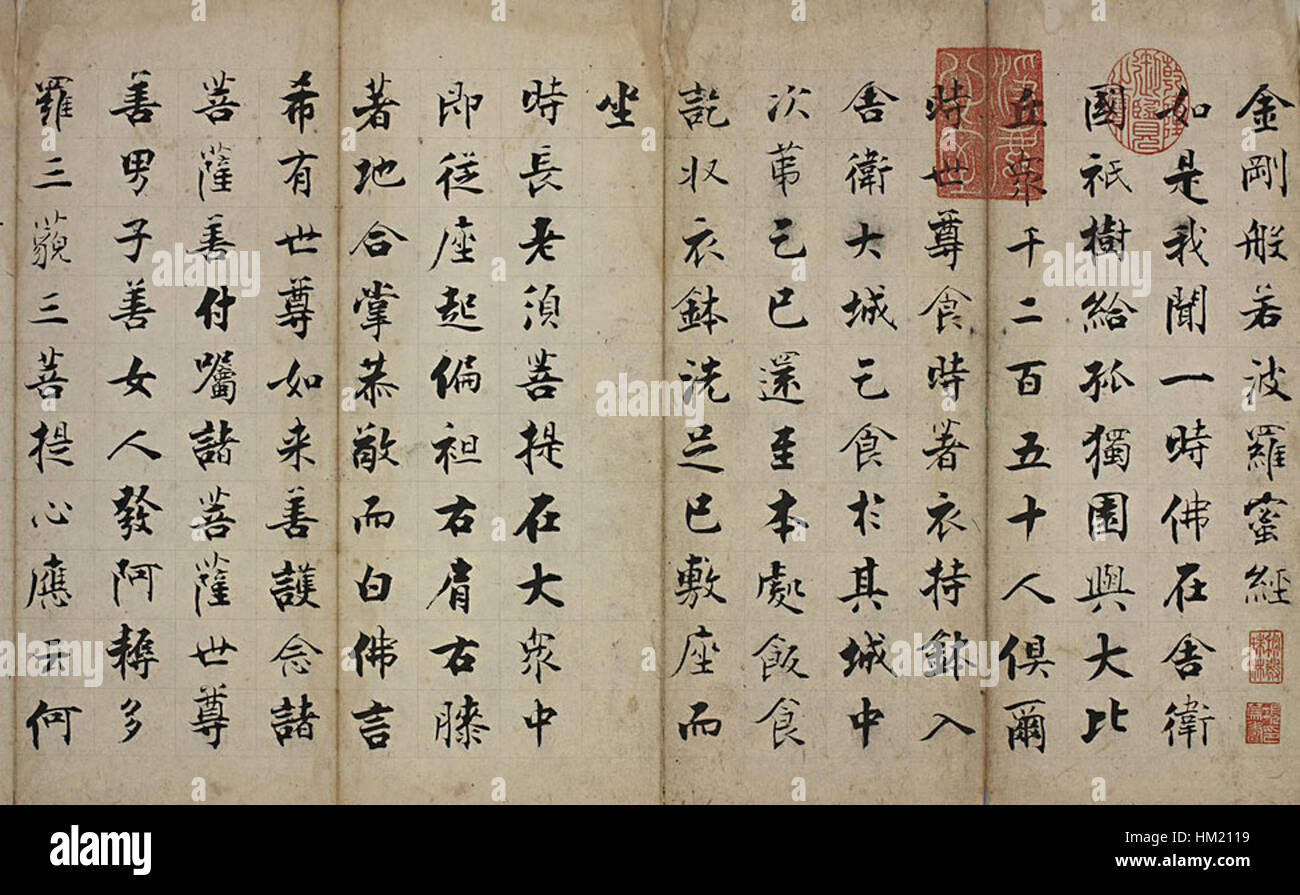 金剛般若波羅蜜經
如是我聞一時佛在舎衛
國祇樹給孤獨園與大比
丘眾千二百五十人俱爾
時世尊食時著衣持鉢入
舎衛大城乞食於其城中
次苐乞已還至本處飯食
訖収衣鉢洗足已敷座而
坐
時長老須菩提在大眾中
即従座起偏袒右肩右膝
著地合掌恭敬而白佛言
希有世尊如来善護念諸
菩薩善付囑諸菩薩世尊
善男子善女人發阿耨多
羅三藐三菩提心應云何
alamy stock photo
alamy
HM2119
www.alamy.com